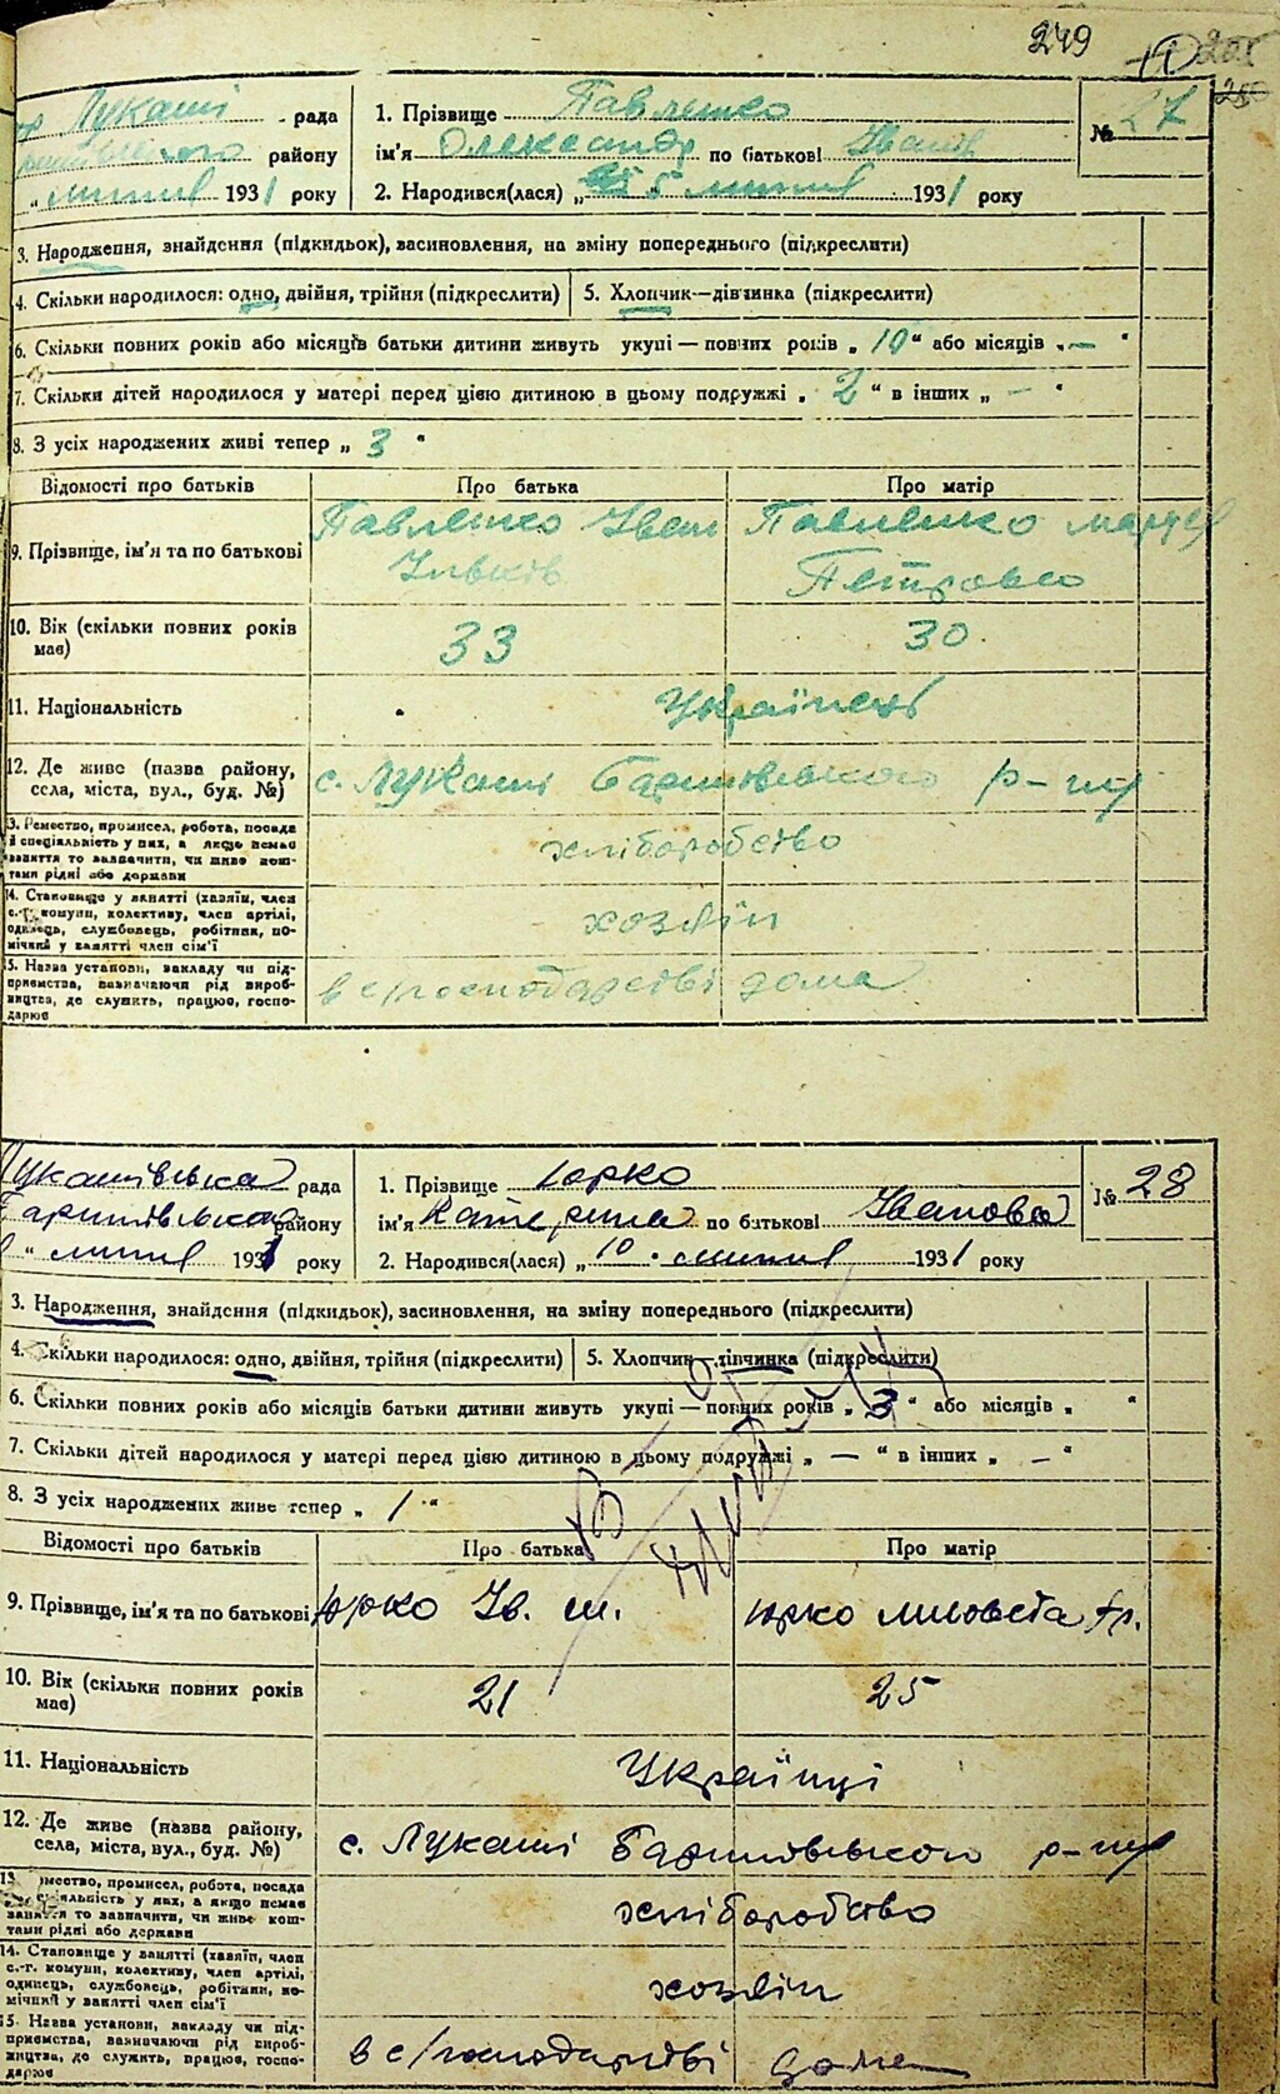 249
Лукаші рада
району
липня 1931 року
1. Прізвище Павленко
ім'я Олександр по батькові Іванов
2. Народився(лася) „ 5 липня 1931 року
№ 27
3. Народження, знайдення (підкидьок), засиновлення, на зміну попереднього (підкреслити)
4. Скільки народилося: одно, двійня, трійня (підкреслити)
5. Хлопчик—дівчинка (підкреслити)
6. Скільки повних років або місяців батьки дитини живуть укупі — повних років „ 10 “ або місяців „ — “
7. Скільки дітей народилося у матері перед цією дитиною в цьому подружжі „ 2 “ в інших „ — “
8. З усіх народжених живі тепер „ 3 “
Відомості про батьків Про батька Про матір
9. Прізвище, ім'я та по батькові
Павленко Іван
Павленко
Петровна
10. Вік (скільки повних років має) 33 30
11. Національність Українці
12. Де живе (назва району, села, міста, вул., буд. №)
с. Лукаші Баришівського р-ну
13. Ремество, промисел, робота, посада
й спеціяльність у них, а якщо немає
заняття то зазначити, чи живе кош-
тами рідні або держави
хліборобство
14. Становище у занятті (хазяїн, член
с.-г. комуни, колективу, член артілі,
одинець, службовець, робітник, по-
мічний у занятті член сім'ї
хозяїн
15. Назва установи, закладу чи під-
приємства, зазначаючи рід вироб-
ництва, де служить, працює, госпо-
дарює
в с/господарстві дома
Лукашівська рада
Баришівського району
“ липня 1931 року
1. Прізвище Юрко
ім'я Катерина по батькові Іванова
2. Народився(лася) „ 10 “ липня 1931 року
№ 28
3. Народження, знайдення (підкидьок), засиновлення, на зміну попереднього (підкреслити)
4. Скільки народилося: одно, двійня, трійня (підкреслити)
5. Хлопчик—дівчинка (підкреслити)
6. Скільки повних років або місяців батьки дитини живуть укупі — повних років „ 3 “ або місяців „ “
7. Скільки дітей народилося у матері перед цією дитиною в цьому подружжі „ — “ в інших „ — “
8. З усіх народжених живе тепер „ 1 “
Відомості про батьків Про батька Про матір
9. Прізвище, ім'я та по батькові
Юрко Ів.
Юрко
10. Вік (скільки повних років має) 21 25
11. Національність Українці
12. Де живе (назва району, села, міста, вул., буд. №)
с. Лукаші Баришівського р-ну
13. Ремество, промисел, робота, посада
й спеціяльність у них, а якщо немає
заняття то зазначити, чи живе кош-
тами рідні або держави
хліборобство
14. Становище у занятті (хазяїн, член
с.-г. комуни, колективу, член артілі,
одинець, службовець, робітник, по-
мічний у занятті член сім'ї
хозяїн
15. Назва установи, закладу чи під-
приємства, зазначаючи рід вироб-
ництва, де служить, працює, госпо-
дарює
в с/господарстві дома